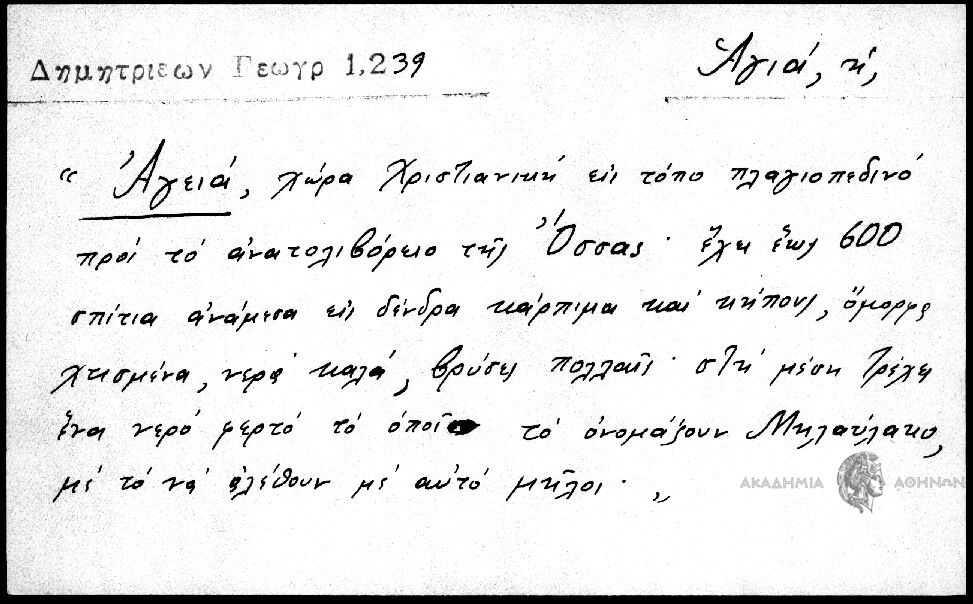 Δημητριεων Γεωγρ 1,239
Ἁγιά, ἡ,
“ Ἁγειά, χώρα Χριστιανική εἰς τόπο πλαγιοπεδινό
πρός τό ἀνατολιβόρειο τῆς Ὄσσας· ἔχει ἕως 600
σπίτια ἀνάμεσα εἰς δένδρα κάρπιμα καί κήπους, ὄμορφα
χτισμένα, νερά καλά, βρύσες πολλαῖς· στή μέση τρέχει
ἕνα νερό φερτό τό ὁποῖο τό ὀνομάζουν Μηλαύλακο,
μέ τό νά ἀλέθουν μέ αὐτό μῆλοι· „
ΑΚΑΔΗΜΙΑ ΑΘΗΝΩΝ